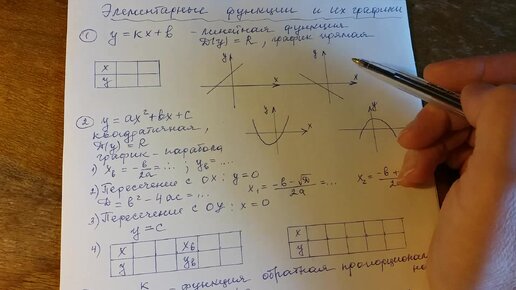 Элементарные функции и их графики
① y = kx + b - линейная функция
D(y) = R, график прямая
x
y
y
x
y
x
② y = ax² + bx + c
квадратичная,
D(y) = R
график - парабола
y
x
y
x
1) xв = -b/2a = ... , yв = ...
2) Пересечение с OX : y = 0
D = b² - 4ac = ... x₁ = -b - √D/2a = ... x₂ = -b +
3) Пересечение с OY : x = 0
y = c
4)
x xв
y yв
x
y
K - функция обратная пропорционал
но